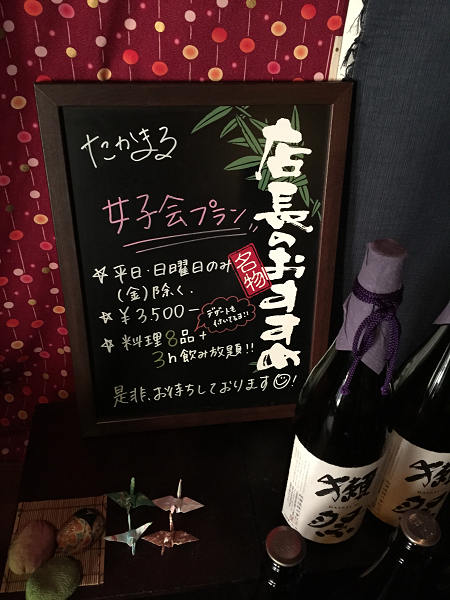 店長のおすすめ
名物
たかまる
女子会プラン
☆平日・日曜日のみ
(金)除く.
☆¥3,500-
デザートも
付いてるヨ!!
☆料理8品+
3h飲み放題!!
是非、お待ちしております☺!
獺祭